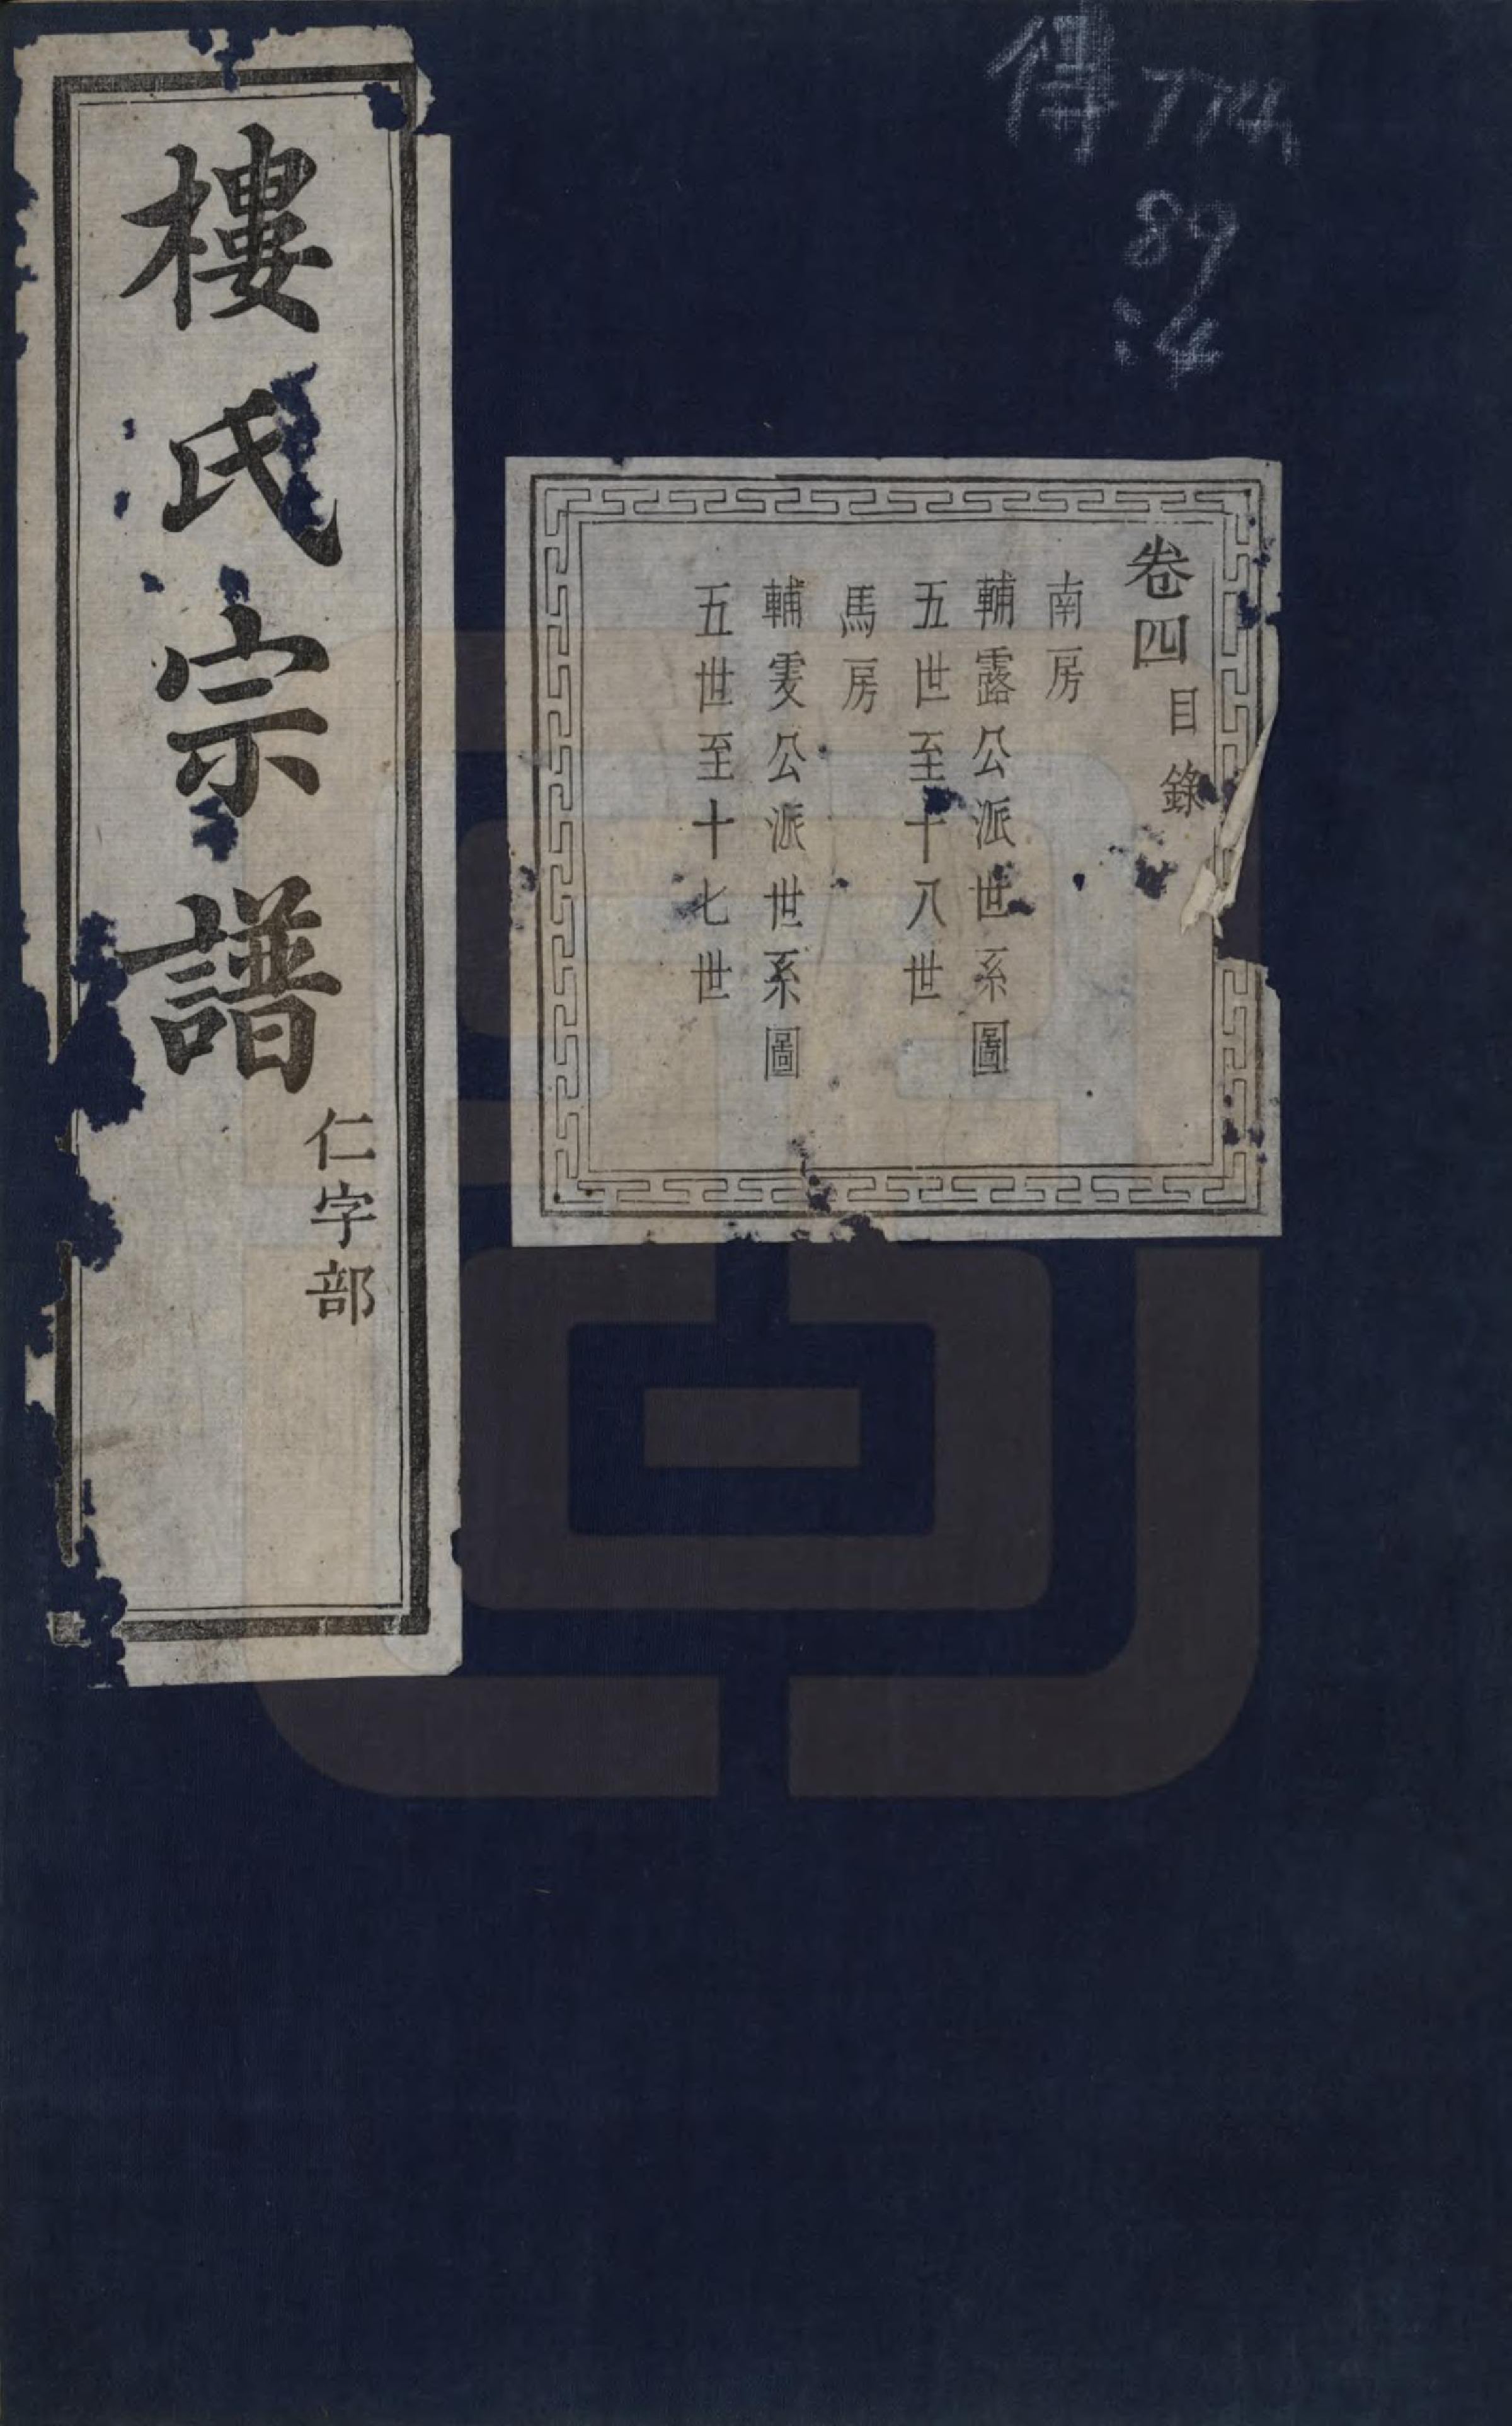 樓氏宗譜
仁字部
傳774
89
:4
卷四
目錄
南房
輔露公派世系圖
五世至十八世
馬房
輔雯公派世系圖
五世至十七世